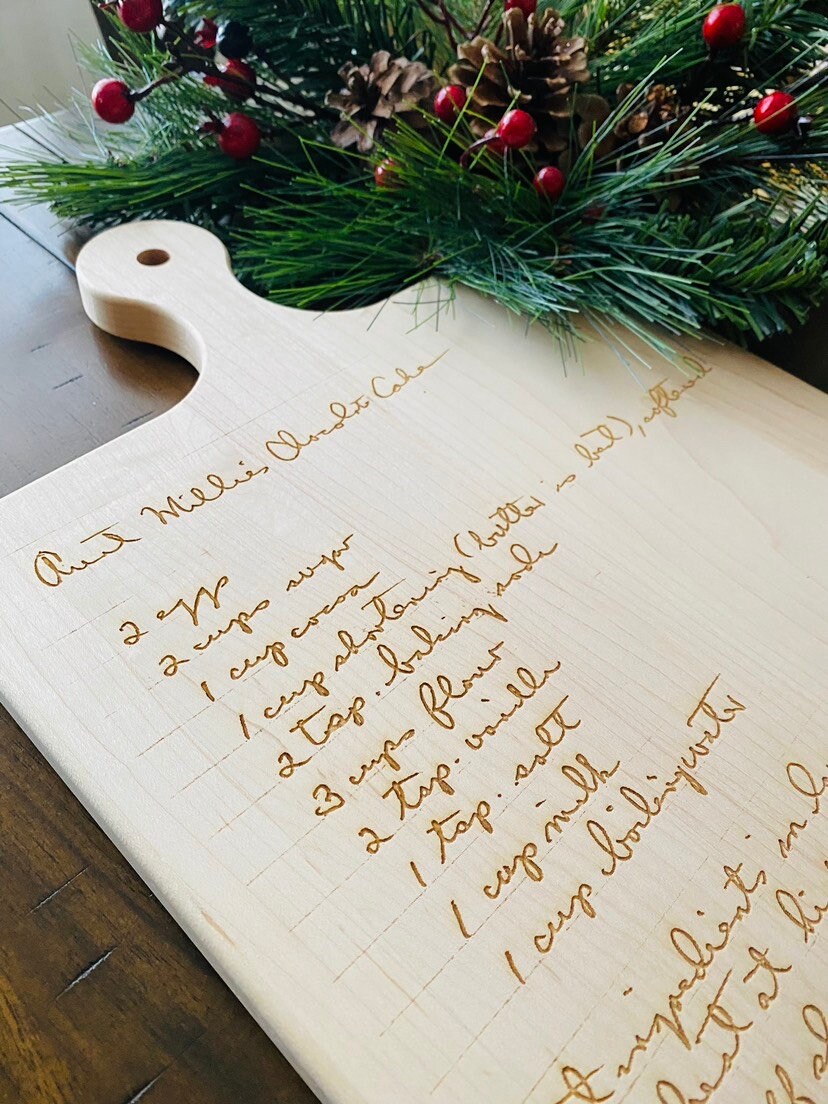 Aunt Millie's Chocolate Cake
2 eggs
2 cups sugar
1 cup cocoa
1 cup shortening (butter is best), softened
2 tsp. baking soda
3 cups flour
2 tsp. vanilla
1 tsp. salt
1 cup milk
1 cup boiling water
ingredients in
beat at